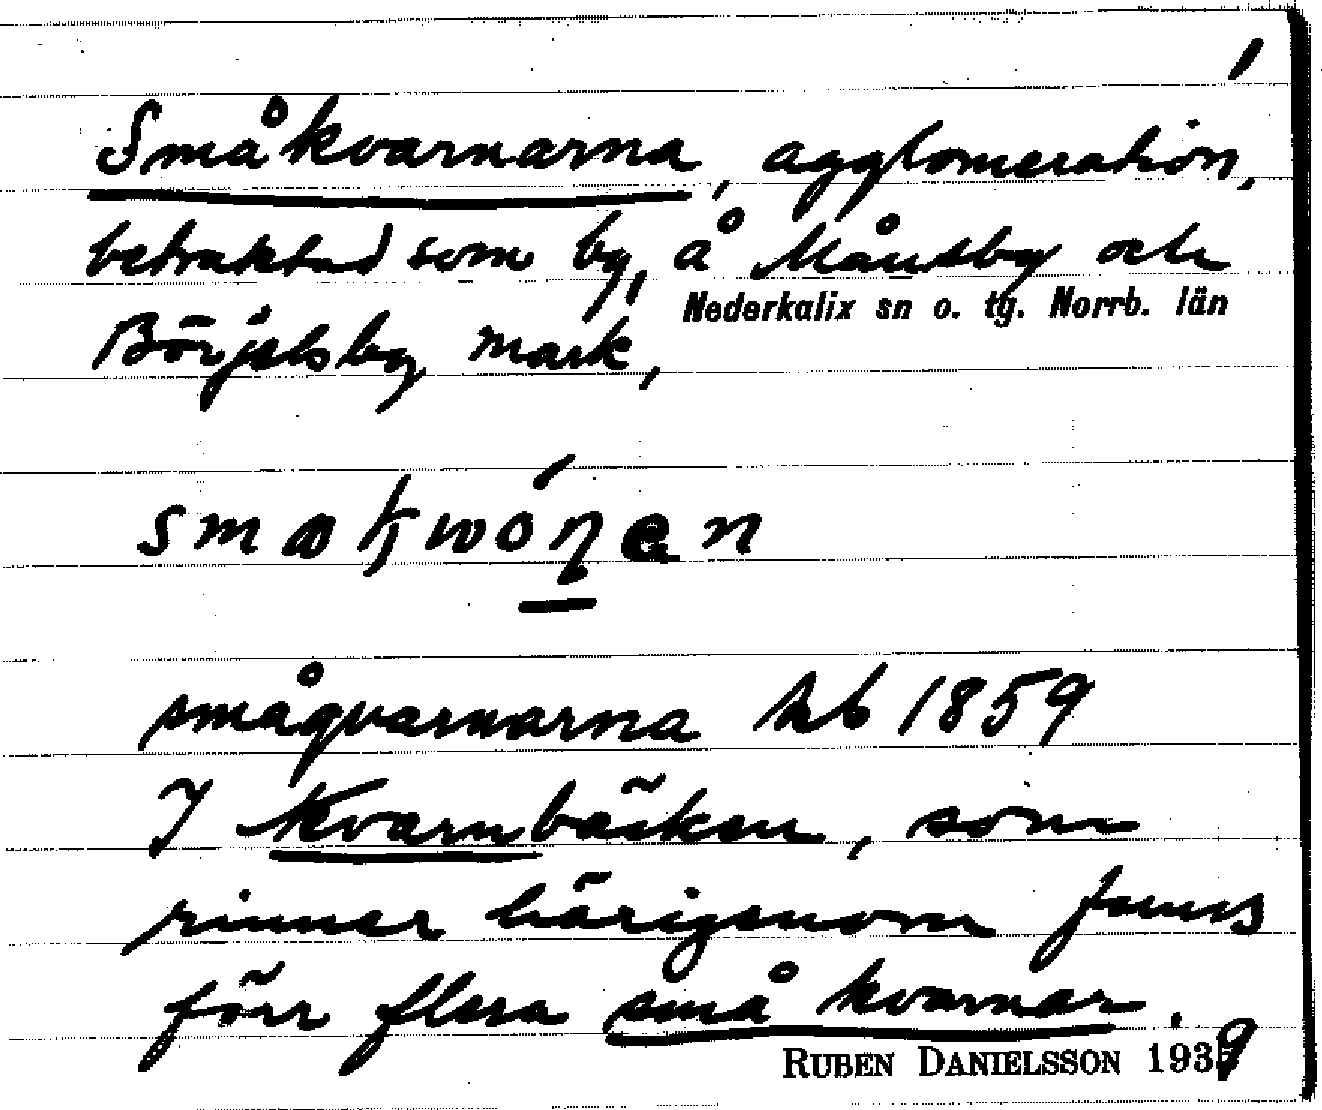 Småkvarnarna, agglomeration,
betraktad som by, å Månsby och
Nederkalix sn o. tg. Norrb. län
Börjelsby mark,
smågvarnarna hb 1859
I Kvarnbäcken, som
rinner härigenom funns
förr flera små kvarnar.
RUBEN DANIELSSON 1939